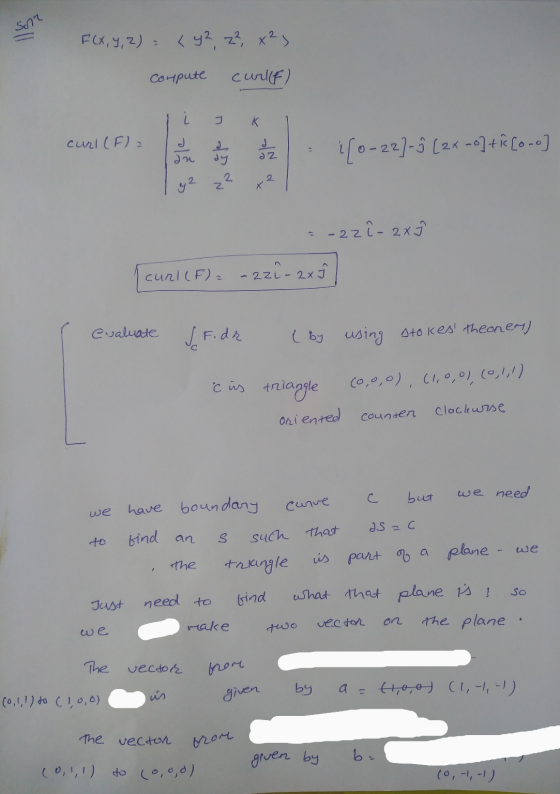 Sol^n
F(x,y,z) = < y², z², x² >
compute curl(F)
curl (F) = | i J K | = î[0-2z]-ĵ[2x-0]+k̂[0-0]
∂/∂x ∂/∂y ∂/∂z
y² z² x²
= -2zî - 2xĵ
curl(F) = -2zî - 2xĵ
evaluate ∫_C F.dr (by using stokes' theorem)
C is triangle (0,0,0), (1,0,0), (0,1,1)
oriented counter clockwise
we have boundary curve C but we need
to find an S such that ∂S = C
. The triangle is part of a plane - we
Just need to find what that plane is ! so
we make two vector on the plane.
The vector from
(0,1,1) to (1,0,0) is given by a = (1,0,0) (1,-1,-1)
The vector from
given by b =
(0,1,1) to (0,0,0) (0,-1,-1)